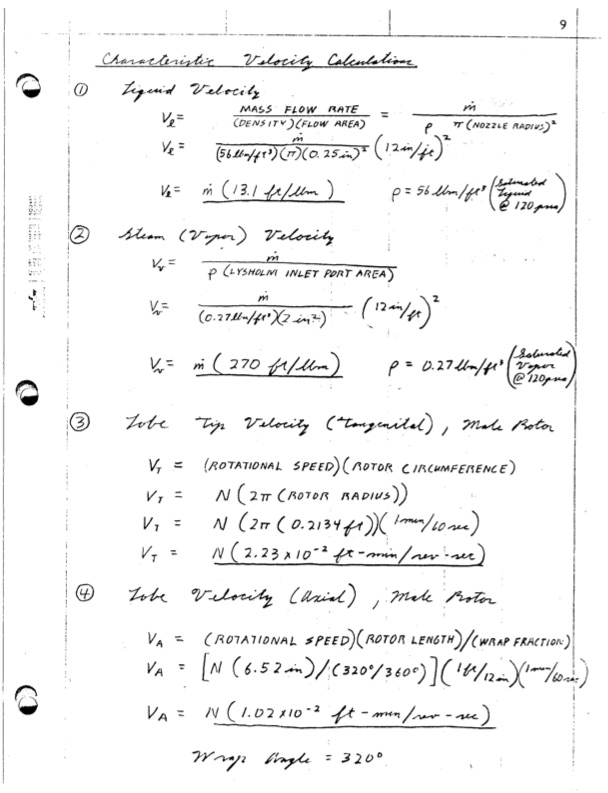 9
Characteristic Velocity Calculations
① Liquid Velocity
V_ℓ = MASS FLOW RATE / (DENSITY)(FLOW AREA) = ṁ / ρ π (NOZZLE RADIUS)²
V_ℓ = ṁ / (56 lbm/ft³)(π)(0.25 in)² (12 in/ft)²
V_ℓ = ṁ (13.1 ft/lbm) ρ = 56 lbm/ft³ (Saturated Liquid @ 120 psia)
② Steam (Vapor) Velocity
V_v = ṁ / ρ (LYSHOLM INLET PORT AREA)
V_v = ṁ / (0.27 lbm/ft³)(2 in²) (12 in/ft)²
V_v = ṁ (270 ft/lbm) ρ = 0.27 lbm/ft³ (Saturated Vapor @ 120 psia)
③ Lobe Tip Velocity (tangenital), Male Rotor
V_T = (ROTATIONAL SPEED)(ROTOR CIRCUMFERENCE)
V_T = N (2π (ROTOR RADIUS))
V_T = N (2π (0.2134 ft))(1 min/60 sec)
V_T = N (2.23 x 10⁻² ft-min/rev-sec)
④ Lobe Velocity (Axial), Male Rotor
V_A = (ROTATIONAL SPEED)(ROTOR LENGTH)/(WRAP FRACTION)
V_A = [N (6.52 in)/(320°/360°)](1 ft/12 in)(1 min/60 sec)
V_A = N (1.02 x 10⁻² ft-min/rev-sec)
Wrap Angle = 320°